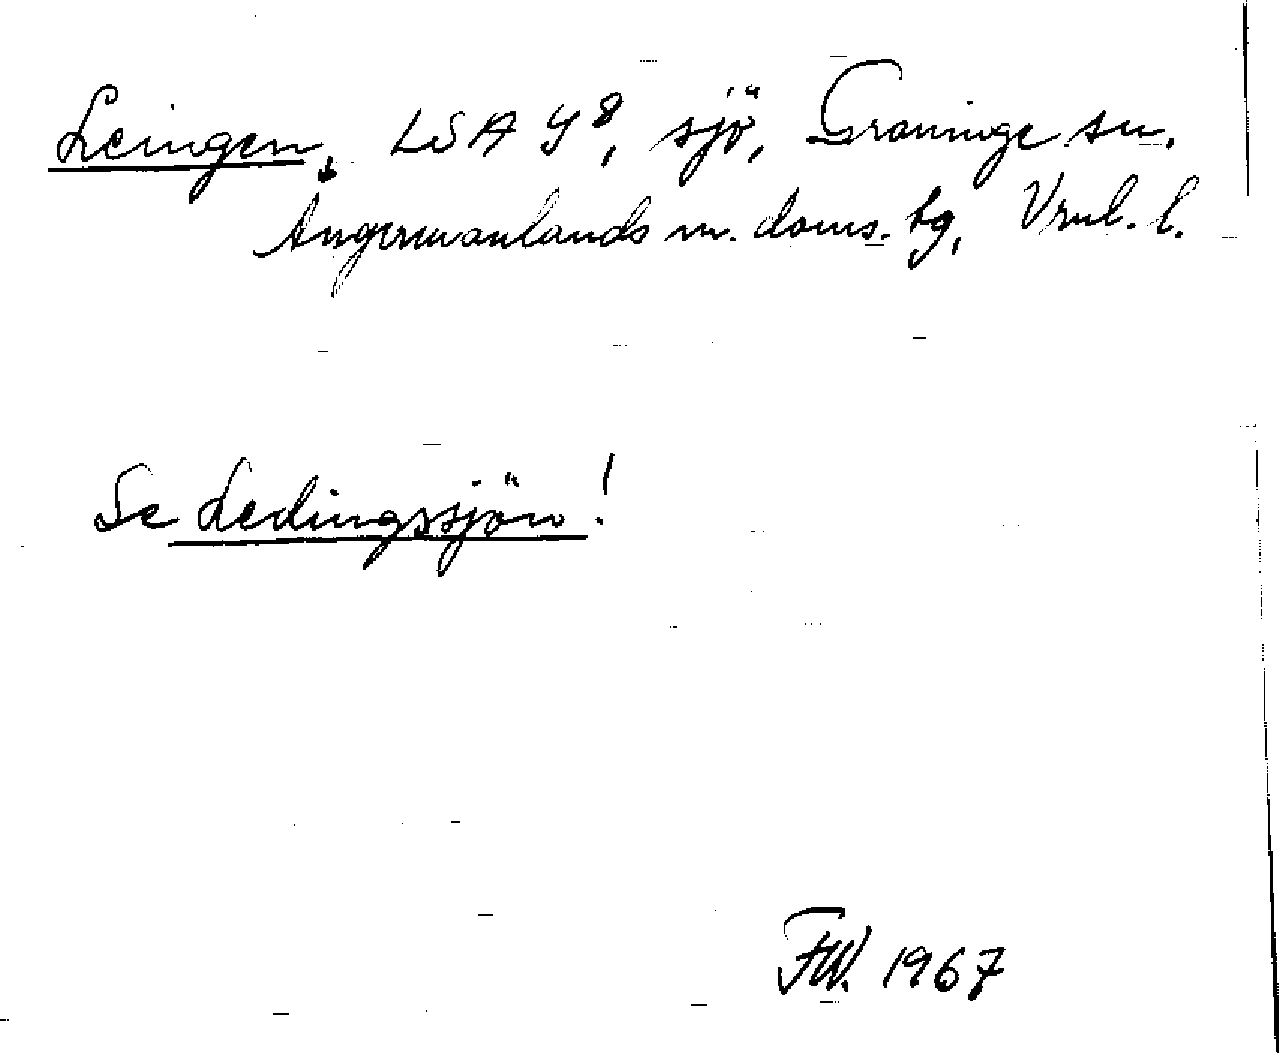 Leingen, LSA Y8, sjö, Graninge sn,
Ångermanlands m. doms. tg, Vrnl. l.
Se Ledingssjön!
FW. 1967